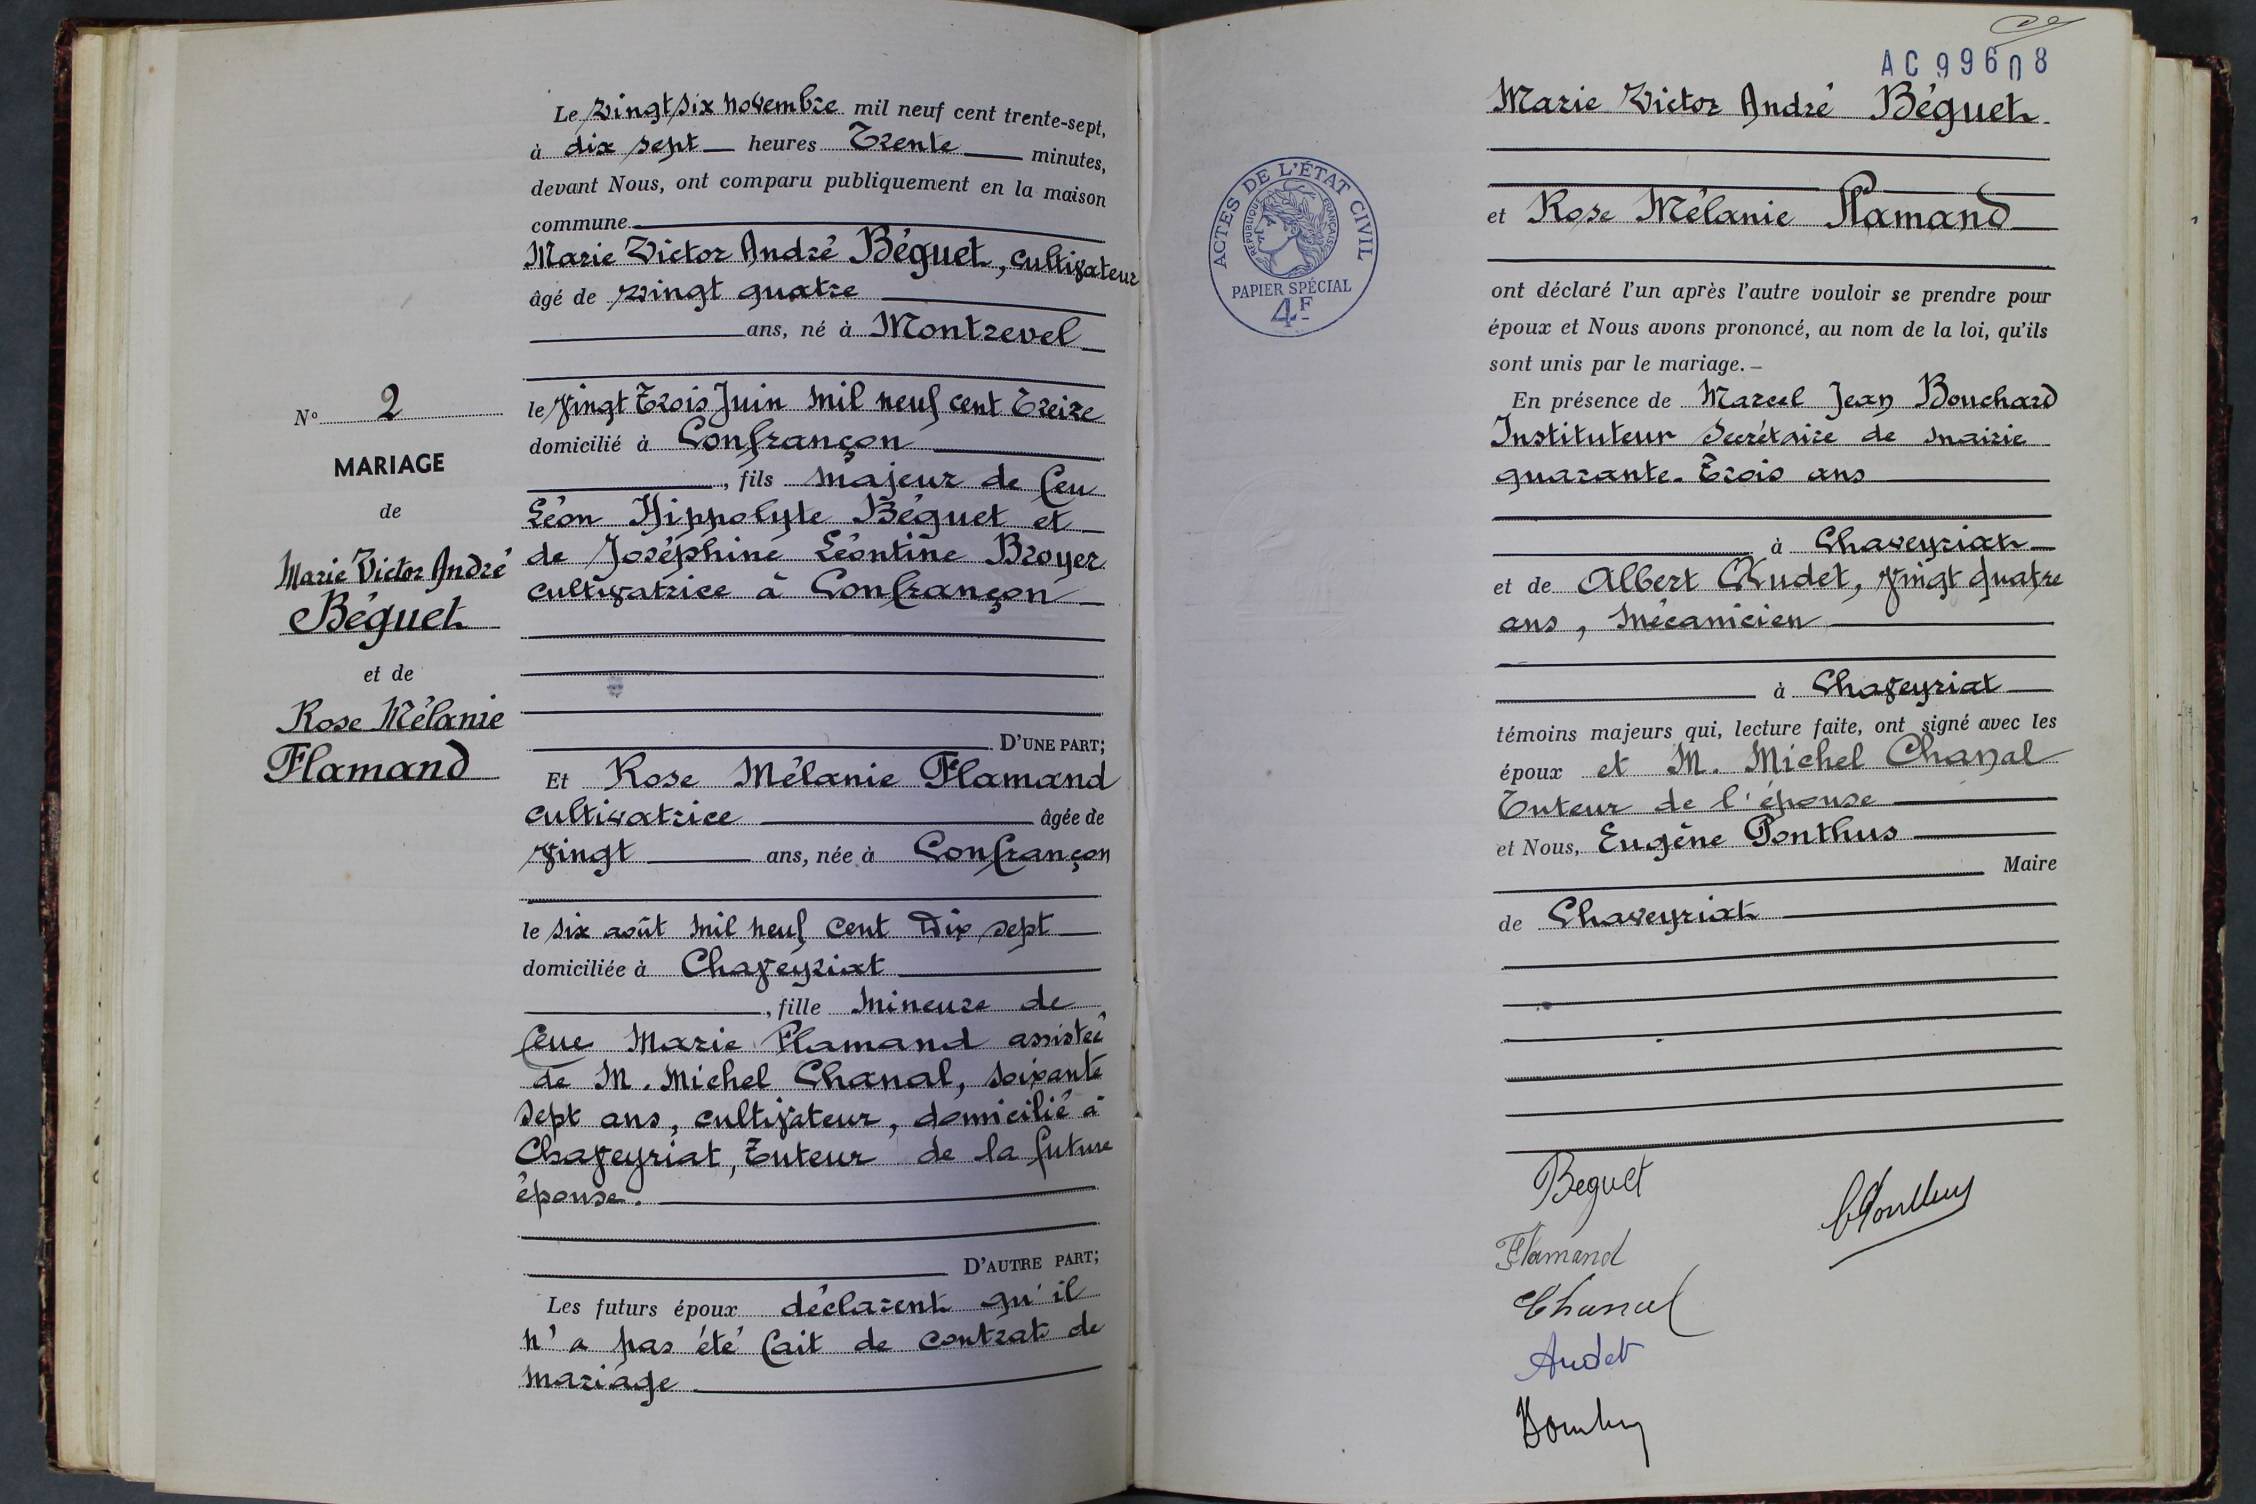 Le vingt six novembre mil neuf cent trente-sept,
à dix sept heures Trente minutes,
devant Nous, ont comparu publiquement en la maison
commune
Marie Victor André Béguet, cultivateur
âgé de vingt quatre
ans, né à Montrevel
le vingt Trois Juin mil neuf cent Treize
domicilié à Confrançon
, fils majeur de feu
Léon Hippolyte Béguet et
de Joséphine Léontine Broyer
cultivatrice à Confrançon
D'UNE PART;
Et Rose Mélanie Flamand
cultivatrice âgée de
vingt ans, née à Confrançon
le six août mil neuf cent Dix sept
domiciliée à Chaveyriat
, fille mineure de
feue Marie Flamand assistée
de M. Michel Chanal, soixante
sept ans, cultivateur, domicilié à
Chaveyriat, Tuteur de la future
épouse.
D'AUTRE PART;
Les futurs époux déclarent qu'il
n'a pas été fait de contrat de
mariage
N° 2
MARIAGE
de
Marie Victor André
Béguet
et de
Rose Mélanie
Flamand
AC 99608
Marie Victor André Béguet
et Rose Mélanie Flamand
ont déclaré l'un après l'autre vouloir se prendre pour
époux et Nous avons prononcé, au nom de la loi, qu'ils
sont unis par le mariage. –
En présence de Marcel Jean Bouchard
Instituteur Secrétaire de mairie
quarante-Trois ans
à Chaveyriat
et de Albert Audet, vingt quatre
ans, mécanicien
à Chaveyriat
témoins majeurs qui, lecture faite, ont signé avec les
époux et M. Michel Chanal
Tuteur de l'épouse
et Nous, Eugène Ponthus
Maire
de Chaveyriat
ACTES DE L'ÉTAT CIVIL
RÉPUBLIQUE FRANÇAISE
PAPIER SPÉCIAL
4F
Beguet
EPonthus
Flamand
Chanal
Audet